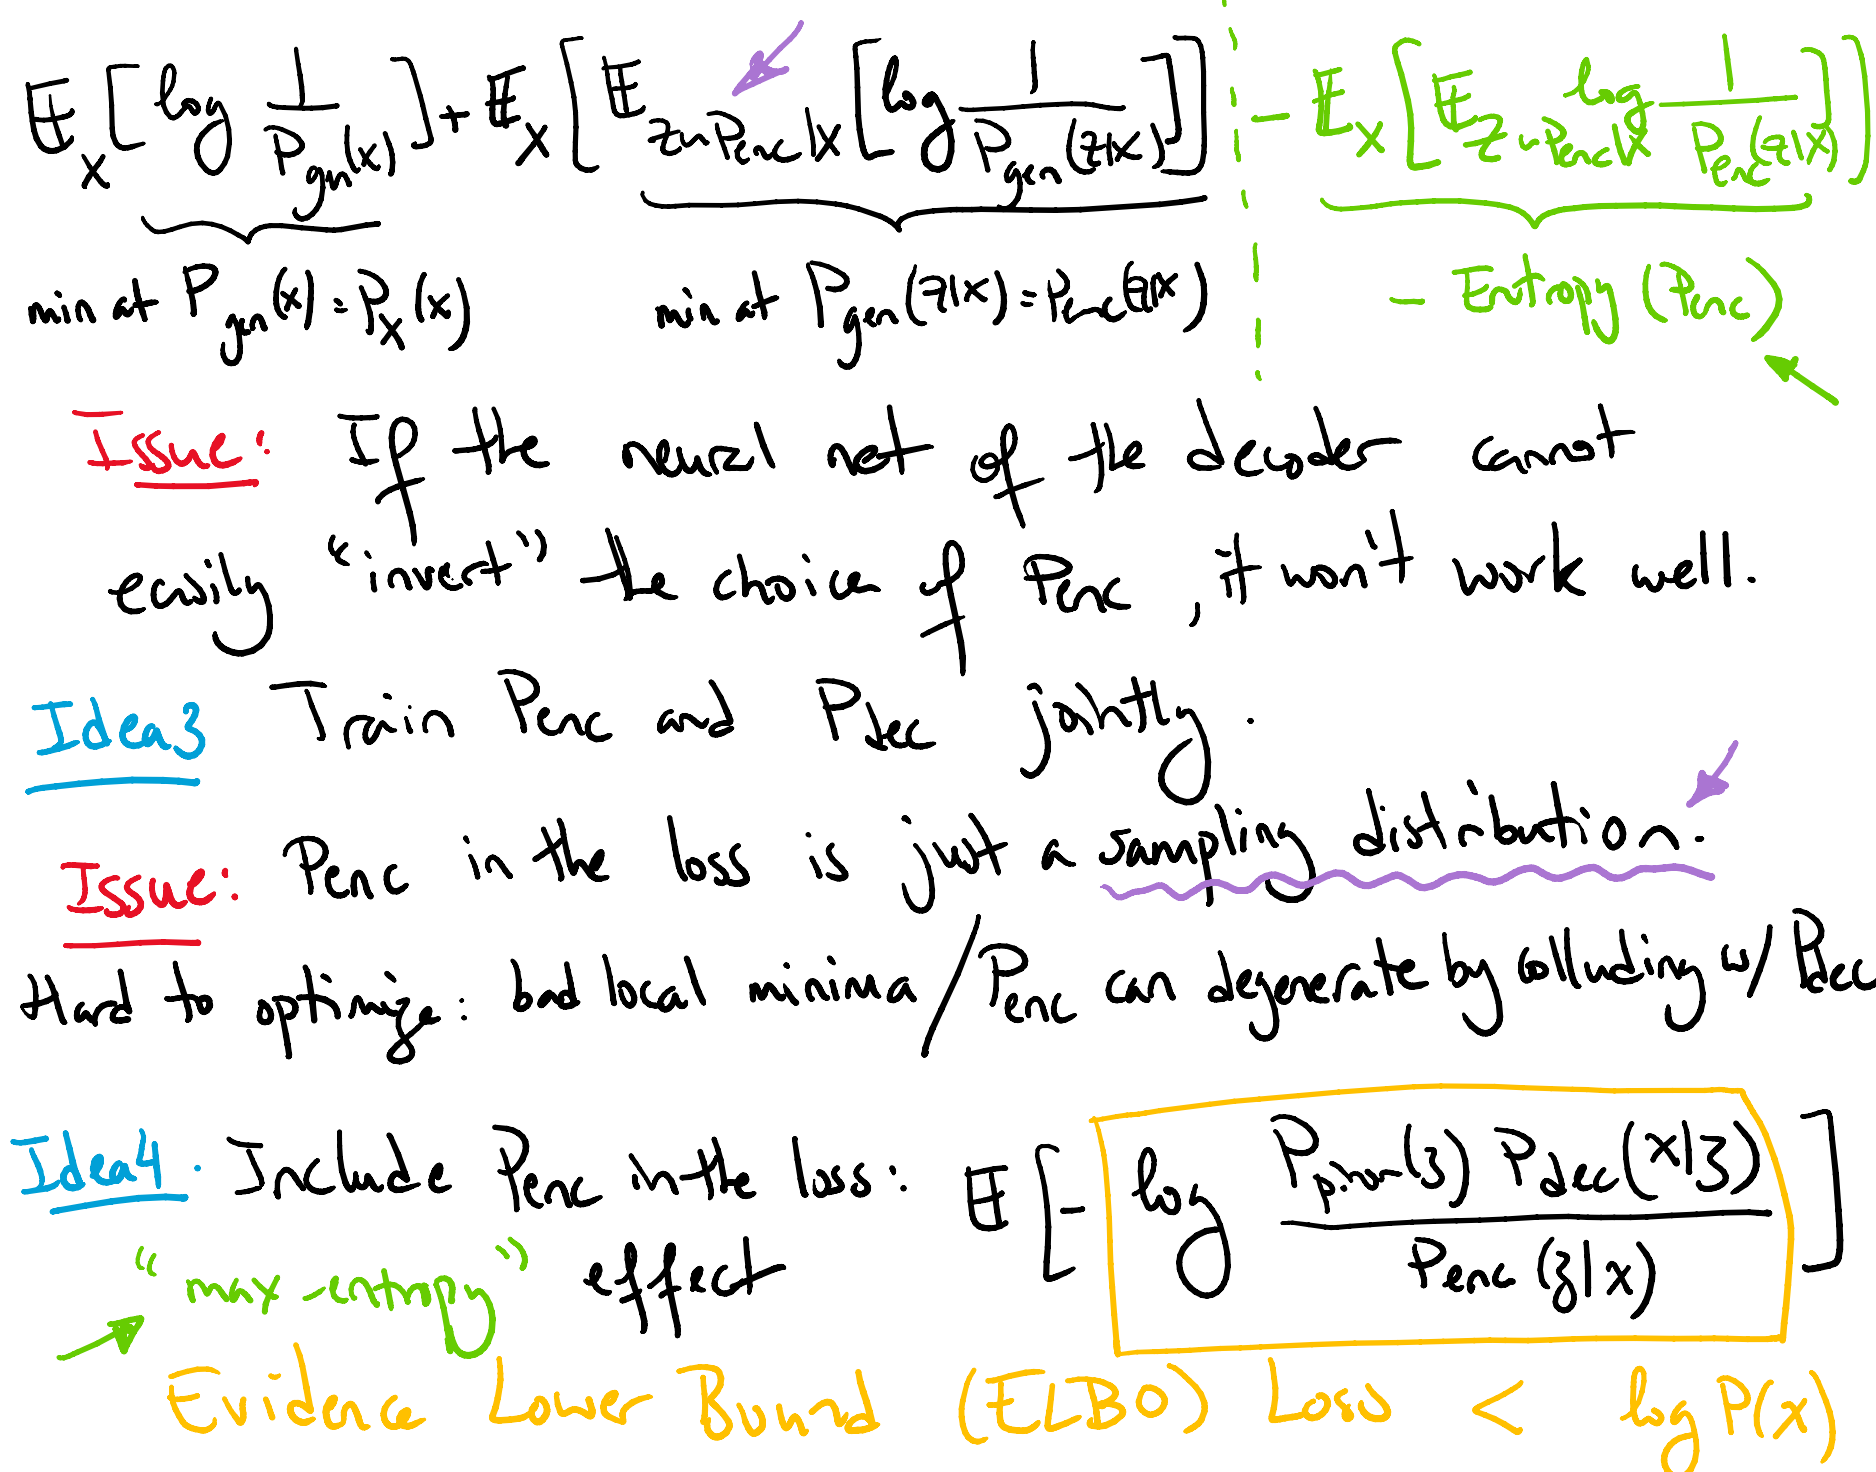 𝔼_X [ log 1/P_gen(x) ] + 𝔼_X [ 𝔼_{z~P_enc|X} [ log 1/P_gen(z|X) ] ] - 𝔼_X [ 𝔼_{z~P_enc|X} log 1/P_enc(z|X) ]
min at P_gen(x) = P_X(x) min at P_gen(z|X) = P_enc(z|X) - Entropy (P_enc)
Issue: If the neural net of the decoder cannot
easily "invert" the choice of P_enc, it won't work well.
Idea3 Train P_enc and P_dec jointly.
Issue: P_enc in the loss is just a sampling distribution.
Hard to optimize: bad local minima / P_enc can degenerate by colluding w/ P_dec
Idea4. Include P_enc in the loss: 𝔼 [ - log P_prior(z) P_dec(x|z) / P_enc(z|x) ]
"max-entropy" effect
Evidence Lower Bound (ELBO) Loss < log P(x)